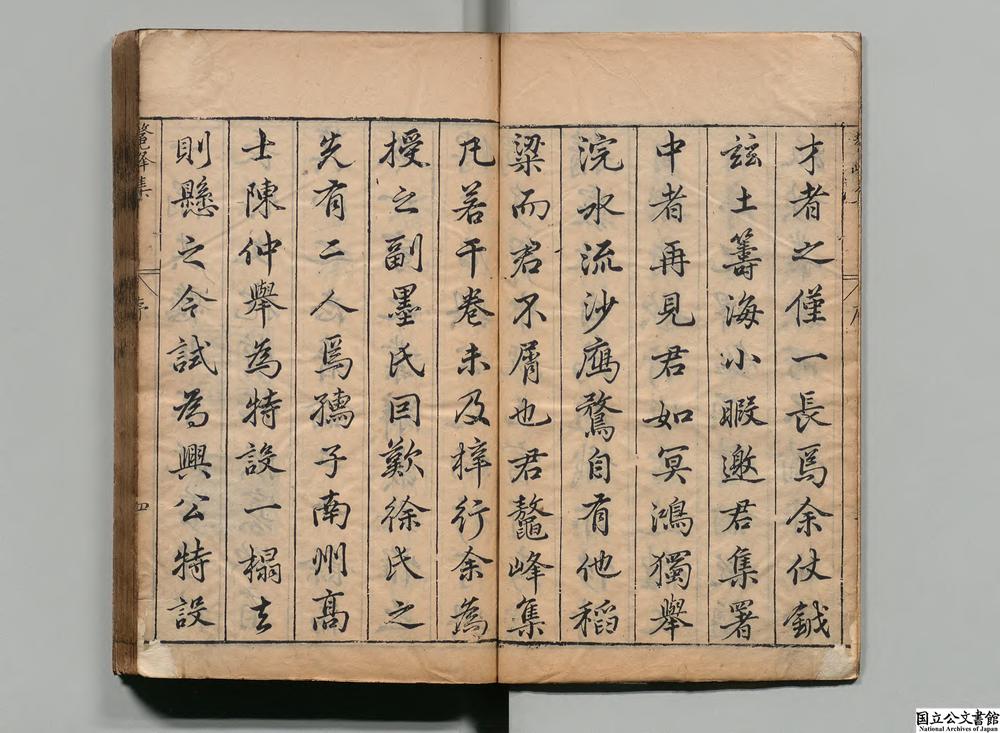 才者之僅一長焉余仗鉞
茲土籌海小暇邀君集署
中者再見君如冥鴻獨舉
浣水流沙鴈鶩自有他稻
粱而君不屑也君鼇峰集
凡若干卷未及梓行余為
授之副墨氏因歎徐氏之
先有二人焉孺子南州高
士陳仲舉為特設一榻去
則懸之今試為興公特設
鼇峰集
序
四
国立公文書館
National Archives of Japan